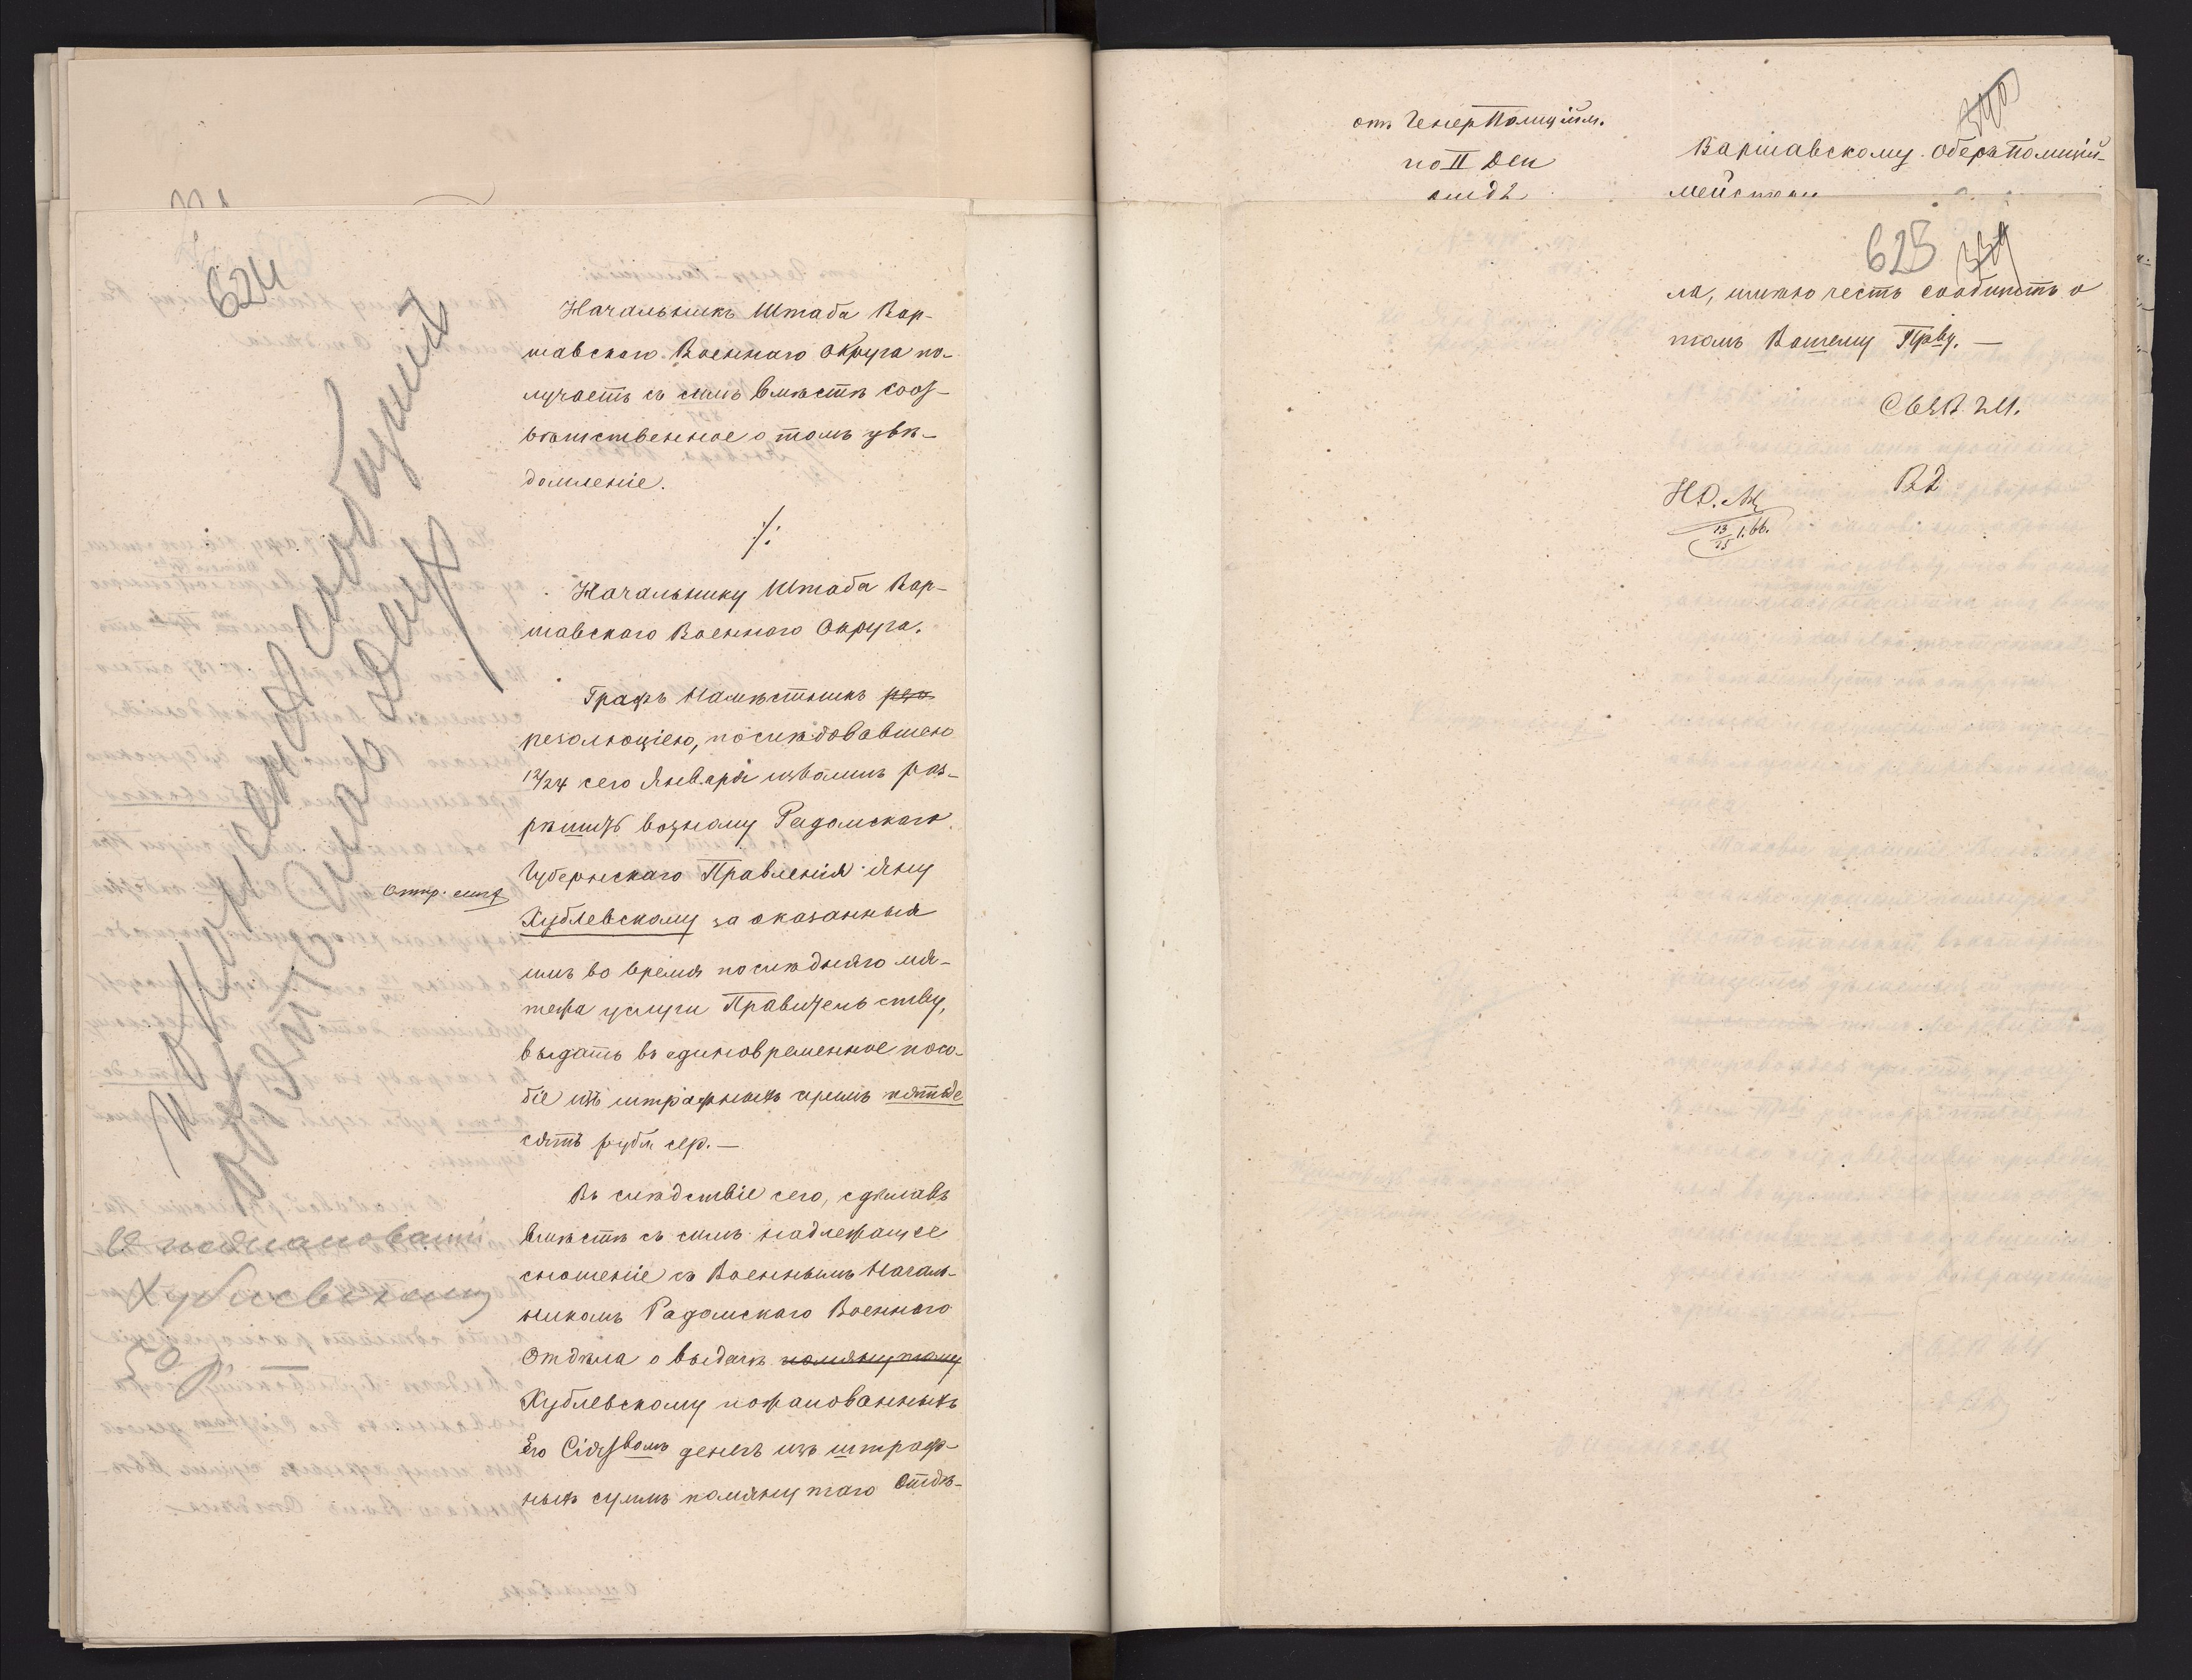 624
Начальникъ Штаба Вар-
шавскаго Военнаго Округа по-
лучаетъ съ симъ вмѣстѣ соот-
вѣтственное о томъ увѣ-
домленіе.
Начальнику Штаба Вар-
шавскаго Военнаго Округа.
Графъ Намѣстникъ
резолюціею, послѣдовавшею
12/24 сего Января изволилъ раз-
рѣшить возному Радомскаго
Губернскаго Правленія Яну
Хублевскому за оказанныя
имъ во время послѣдняго мя-
тежа услуги Правительству,
выдать въ единовременное посо-
біе изъ штрафныхъ суммъ пятьде
сятъ рубл сер. —
Въ слѣдствіе сего, сдѣлавъ
вмѣстѣ съ симъ надлежащее
сношеніе съ Военнымъ Началь-
никомъ Радомскаго Военнаго
Отдѣла о выдачѣ помянутому
Хублевскому пожалованныхъ
Его Сіятвомъ денегъ изъ штраф-
ныхъ суммъ помянутаго Отдѣ-
Отпр.
Хублевскому
50 р.
отъ Генер Полиціим.
по II Деп
340
Варшавскому Оберъ Полицій-
мейстеру
625 339
ла, имѣю честь сообщить о
томъ Вашему Прву. —
13/25 1. 66.